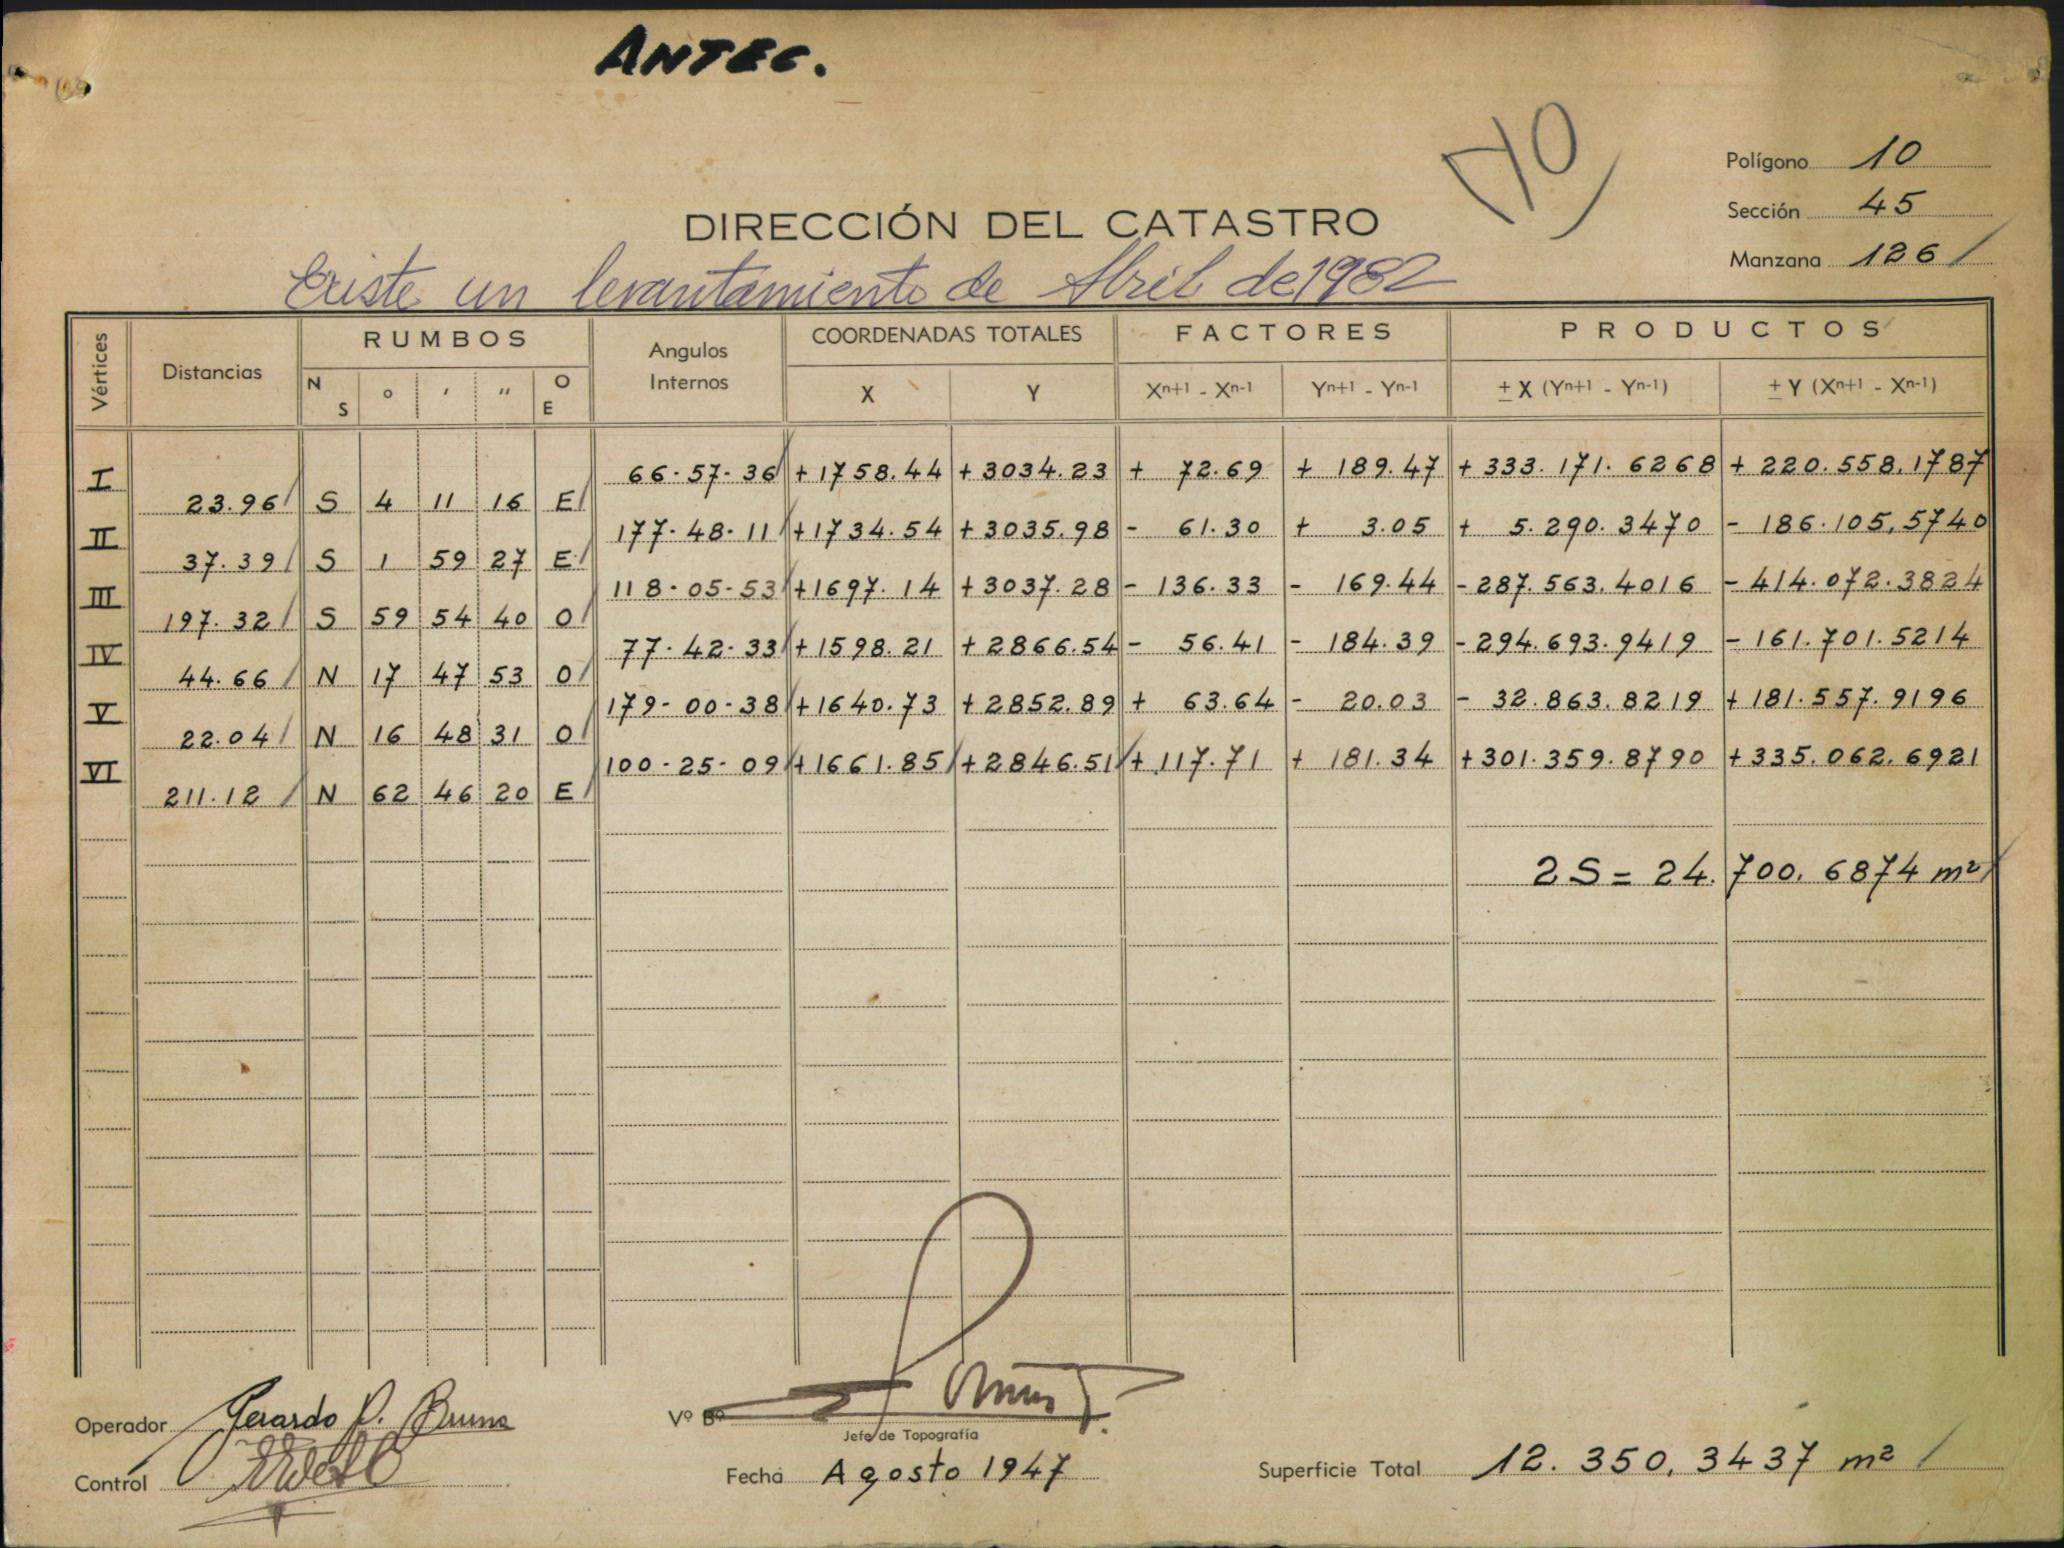 ANTEC.
10
Polígono 10
Sección 45
Manzana 126
DIRECCIÓN DEL CATASTRO
Existe un levantamiento de Abril de 1982
Vértices Distancias RUMBOS Angulos Internos COORDENADAS TOTALES FACTORES PRODUCTOS
N S ° ' " O E X Y Xn+1 - Xn-1 Yn+1 - Yn-1 ± X (Yn+1 - Yn-1) ± Y (Xn+1 - Xn-1)
I 66-57-36 +1758.44 +3034.23 + 72.69 + 189.47 +333.171.6268 +220.558.1787
23.96 S 4 11 16 E
II 177-48-11 +1734.54 +3035.98 - 61.30 + 3.05 + 5.290.3470 - 186.105,5740
37.39 S 1 59 27 E
III 118-05-53 +1697.14 +3037.28 - 136.33 - 169.44 -287.563.4016 - 414.072.3824
197.32 S 59 54 40 O
IV 77-42-33 +1598.21 +2866.54 - 56.41 - 184.39 -294.693.9419 - 161.701.5214
44.66 N 17 47 53 O
V 179-00-38 +1640.73 +2852.89 + 63.64 - 20.03 - 32.863.8219 +181.557.9196
22.04 N 16 48 31 O
VI 100-25-09 +1661.85 +2846.51 +117.71 + 181.34 +301.359.8790 +335.062.6921
211.12 N 62 46 20 E
2S = 24.700.6874 m²
Operador Gerardo P. Bruno
Vº Bº
Jefe de Topografía
Control
Fecha Agosto 1947
Superficie Total 12.350,3437 m²